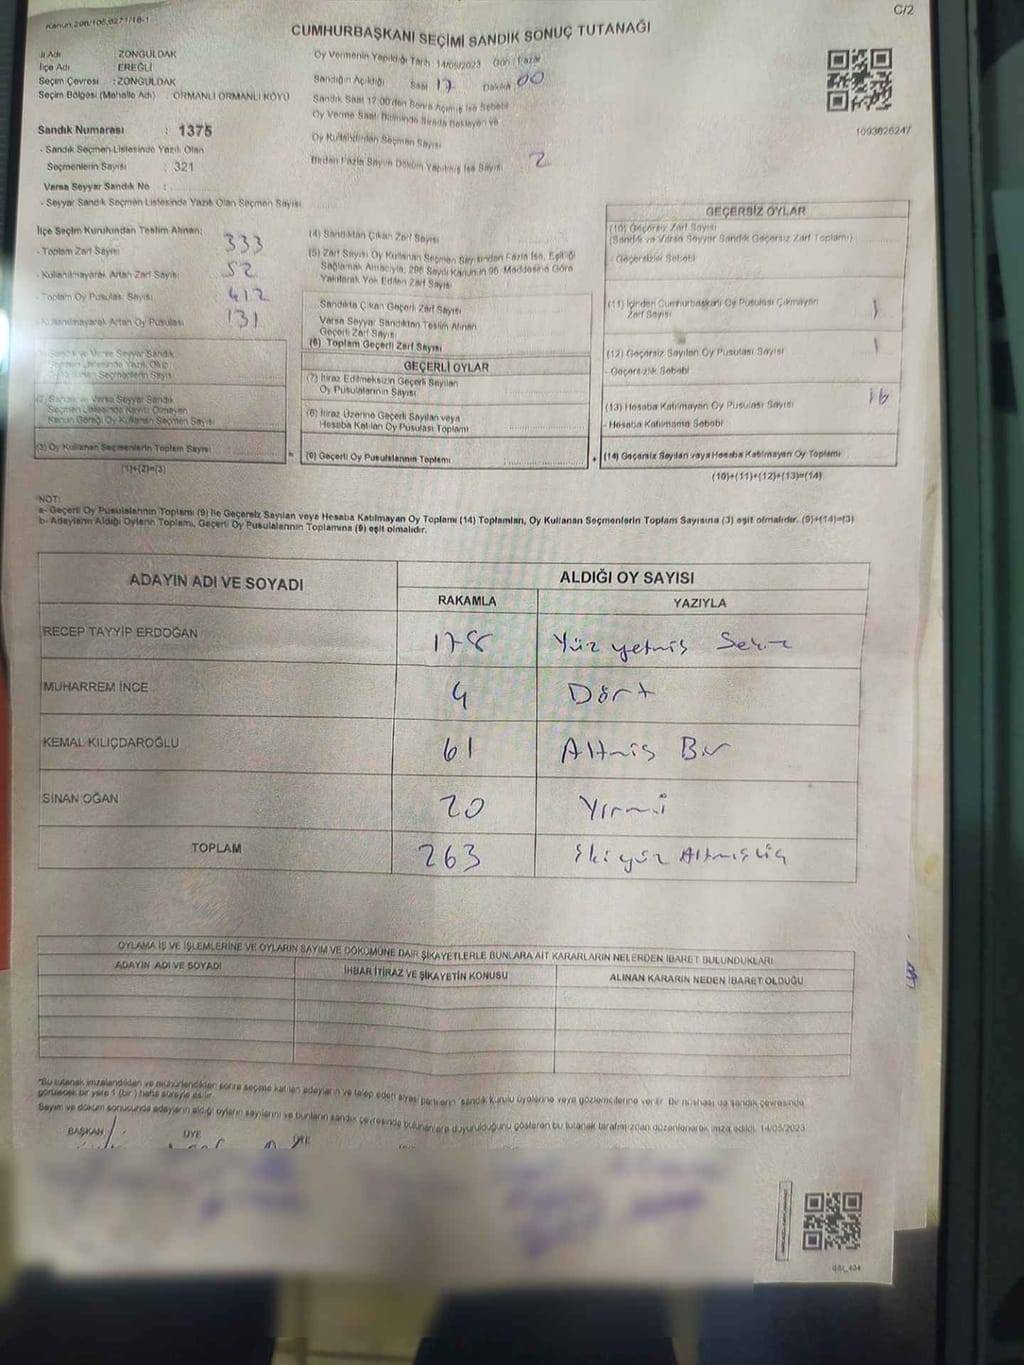 Kanun:298/105,6271/18-1
C/2
CUMHURBAŞKANI SEÇİMİ SANDIK SONUÇ TUTANAĞI
İl Adı : ZONGULDAK
İlçe Adı : EREĞLİ
Seçim Çevresi : ZONGULDAK
Seçim Bölgesi (Mahalle Adı) : ORMANLI ORMANLI KÖYÜ
Sandık Numarası : 1375
- Sandık Seçmen Listesinde Yazılı Olan
Seçmenlerin Sayısı : 321
Varsa Seyyar Sandık No :
- Seyyar Sandık Seçmen Listesinde Yazılı Olan Seçmen Sayısı
Oy Vermenin Yapıldığı Tarih: 14/05/2023 Gün : Pazar
Sandığın Açıldığı Saat 17 Dakika 00
Sandık Saat 17:00'den Sonra Açılmış İse Sebebi
Oy Verme Saati Bitiminde Sırada Bekleyen ve
Oy Kullandırılan Seçmen Sayısı
Birden Fazla Sayım Döküm Yapılmış İse Sayısı 2
1093626247
İlçe Seçim Kurulundan Teslim Alınan;
- Toplam Zarf Sayısı 333
- Kullanılmayarak Artan Zarf Sayısı 52
- Toplam Oy Pusulası Sayısı 412
- Kullanılmayarak Artan Oy Pusulası 131
(1) Sandık ve Varsa Seyyar Sandık
Seçmen Listesinde Yazılı Olup
Oy Kullanan Seçmenlerin Sayısı
(2) Sandık ve Varsa Seyyar Sandık
Seçmen Listesinde Kayıtlı Olmayan
Kanun Gereği Oy Kullanan Seçmen Sayısı
(3) Oy Kullanan Seçmenlerin Toplam Sayısı
(1)+(2)=(3)
(4) Sandıktan Çıkan Zarf Sayısı
(5) Zarf Sayısı Oy Kullanan Seçmen Sayısından Fazla İse, Eşitliği
Sağlamak Amacıyla, 298 Sayılı Kanunun 98. Maddesine Göre
Yakılarak Yok Edilen Zarf Sayısı
Sandıkta Çıkan Geçerli Zarf Sayısı
Varsa Seyyar Sandıktan Teslim Alınan
Geçerli Zarf Sayısı
(6) Toplam Geçerli Zarf Sayısı
GEÇERLİ OYLAR
(7) İtiraz Edilmeksizin Geçerli Sayılan
Oy Pusulalarının Sayısı
(8) İtiraz Üzerine Geçerli Sayılan veya
Hesaba Katılan Oy Pusulası Toplamı
(9) Geçerli Oy Pusulalarının Toplamı
GEÇERSİZ OYLAR
(10) Geçersiz Zarf Sayısı
(Sandık ve Varsa Seyyar Sandık Geçersiz Zarf Toplamı)
- Geçersizlik Sebebi
(11) İçinden Cumhurbaşkanı Oy Pusulası Çıkmayan
Zarf Sayısı 1
(12) Geçersiz Sayılan Oy Pusulası Sayısı 1
- Geçersizlik Sebebi
(13) Hesaba Katılmayan Oy Pusulası Sayısı 16
- Hesaba Katılmama Sebebi
(14) Geçersiz Sayılan veya Hesaba Katılmayan Oy Toplamı
(10)+(11)+(12)+(13)=(14)
NOT:
a- Geçerli Oy Pusulalarının Toplamı (9) ile Geçersiz Sayılan veya Hesaba Katılmayan Oy Toplamı (14) Toplamları, Oy Kullanan Seçmenlerin Toplam Sayısına (3) eşit olmalıdır. (9)+(14)=(3)
b- Adayların Aldığı Oyların Toplamı, Geçerli Oy Pusulalarının Toplamına (9) eşit olmalıdır.
ADAYIN ADI VE SOYADI
ALDIĞI OY SAYISI
RAKAMLA YAZIYLA
RECEP TAYYİP ERDOĞAN 178 Yüz yetmiş Sekiz
MUHARREM İNCE 4 Dört
KEMAL KILIÇDAROĞLU 61 Altmış Bir
SİNAN OĞAN 20 Yirmi
TOPLAM 263 İki yüz Altmış Üç
OYLAMA İŞ VE İŞLEMLERİNE VE OYLARIN SAYIM VE DÖKÜMÜNE DAİR ŞİKAYETLERLE BUNLARA AİT KARARLARIN NELERDEN İBARET BULUNDUKLARI
ADAYIN ADI VE SOYADI
İHBAR İTİRAZ VE ŞİKAYETİN KONUSU
ALINAN KARARIN NEDEN İBARET OLDUĞU
"Bu tutanak imzalandıktan ve mühürlendikten sonra seçime katılan adayların ve talep eden siyasi partilerin sandık kurulu üyelerine veya gözlemcilerine verilir. Bir nüshası da sandık çevresinde
görülecek bir yere 1 (bir) hafta süreyle asılır.
Sayım ve döküm sonucunda adayların aldığı oyların sayılarını ve bunların sandık çevresinde bulunanlara duyurulduğunu gösteren bu tutanak tarafımızdan düzenlenerek imza edildi. 14/05/2023
BAŞKAN ÜYE ÜYE